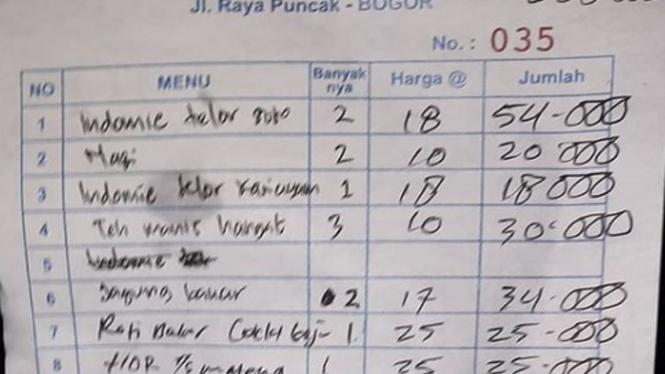 Jl. Raya Puncak - BOGOR
No.: 035
NO MENU Banyak nya Harga @ Jumlah
1 Indomie telor soto 2 18 54-000
2 Nasi 2 10 20 000
3 Indomie telor 1 18 18 000
4 Teh manis hangat 3 10 30.000
5 Indomie
6 Jagung bakar 2 17 34.000
7 Roti Bakar Coklat keju 1 25 25-000
8 1 25 25-000